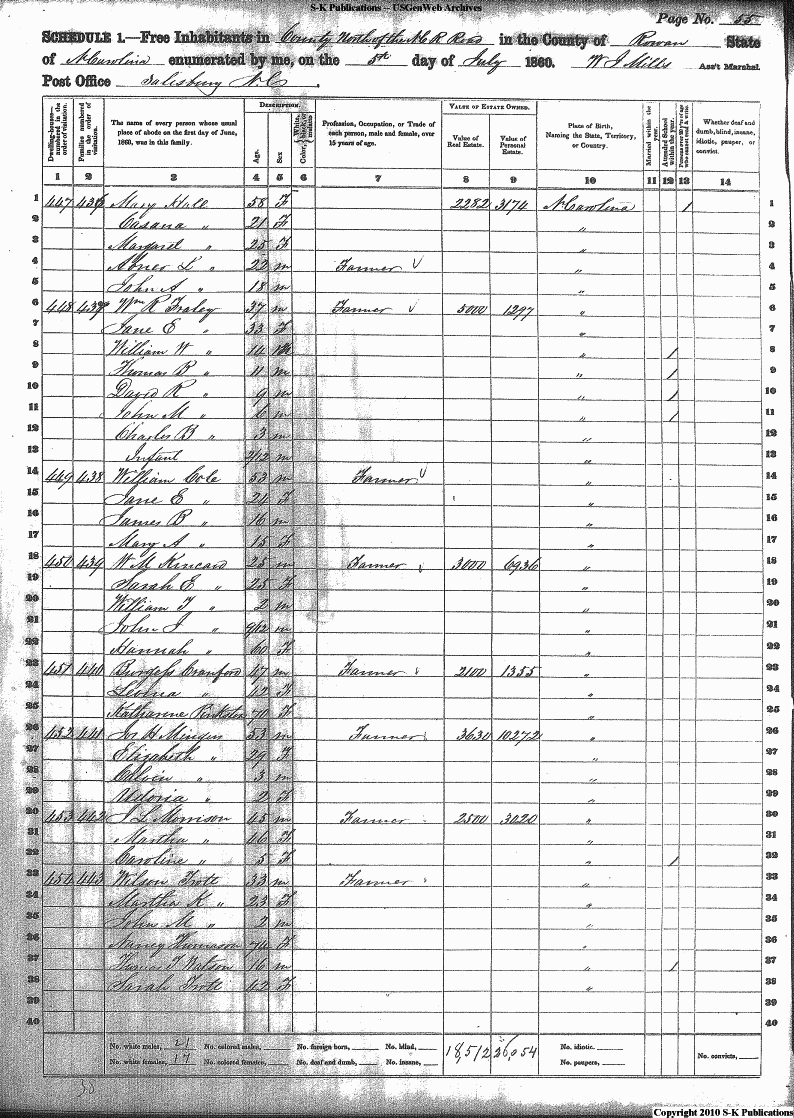 S-K Publications – USGenWeb Archives
Page No. 55
SCHEDULE 1.—Free Inhabitants in County North of the N C R Road in the County of Rowan State
of N Carolina enumerated by me, on the 5th day of July 1860. W J Mills Ass't Marshal.
Post Office Salisbury N. C.
Dwelling-houses—numbered in the order of visitation.
Families numbered in the order of visitation.
The name of every person whose usual place of abode on the first day of June, 1860, was in this family.
DESCRIPTION.
Age.
Sex
Color, White, black, or mulatto
Profession, Occupation, or Trade of each person, male and female, over 15 years of age.
VALUE OF ESTATE OWNED.
Value of Real Estate.
Value of Personal Estate.
Place of Birth, Naming the State, Territory, or Country.
Married within the year.
Attended School within the year.
Persons over 20 y'rs of age who cannot read & write.
Whether deaf and dumb, blind, insane, idiotic, pauper, or convict.
1 2 3 4 5 6 7 8 9 10 11 12 13 14
1 447 436 Mary Hall 58 F 2282 3174 N Carolina / 1
2 " 21 F " 2
3 Margaret " 25 F " 3
4 Abner L " 22 m Farmer " 4
5 John A " 18 m " 5
6 448 437 Wm R Fraley 37 m Farmer 5000 1297 " 6
7 Jane E " 33 F " 7
8 William W " 14 m " / 8
9 Thomas B " 11 m " / 9
10 David R " 9 m " / 10
11 John M " 6 m " / 11
12 Charles B " 3 m " 12
13 Infant 2/12 m " 13
14 449 438 William Cole 53 m Farmer " 14
15 Jane E " 21 F " 15
16 James B " 16 m " 16
17 Mary A " 15 F " 17
18 450 439 W M Kincaid 25 m Farmer 3000 6936 " 18
19 Sarah E " 25 F " 19
20 William T " 2 m " 20
21 John J " 9/12 m " 21
22 Hannah " 60 F " 22
23 451 440 Burgess Cranford 47 m Farmer 2100 1355 " 23
24 " 42 F " 24
25 Katharine Pinkston 70 F " 25
26 452 441 53 m Farmer 3630 10272 " 26
27 Elizabeth " 29 F " 27
28 Calvin " 3 m " 28
29 " 2 F " 29
30 453 442 J L Morrison 45 m Farmer 2500 3020 " 30
31 Martha " 46 F " 31
32 Caroline " 5 F " / 32
33 454 443 Wilson Trott 33 m Farmer " 33
34 Martha K " 23 F " 34
35 John M " 2 m " 35
36 Nancy 74 F " 36
37 Thomas T Watson 16 m " / 37
38 Sarah Trott 42 F " 38
39 39
40 40
No. white males, 21 No. colored males, No. foreign born, No. blind, 18,512 26,054 No. idiotic, No. convicts,
No. white females, 17 No. colored females, No. deaf and dumb, No. insane, No. paupers,
Copyright 2010 S-K Publications